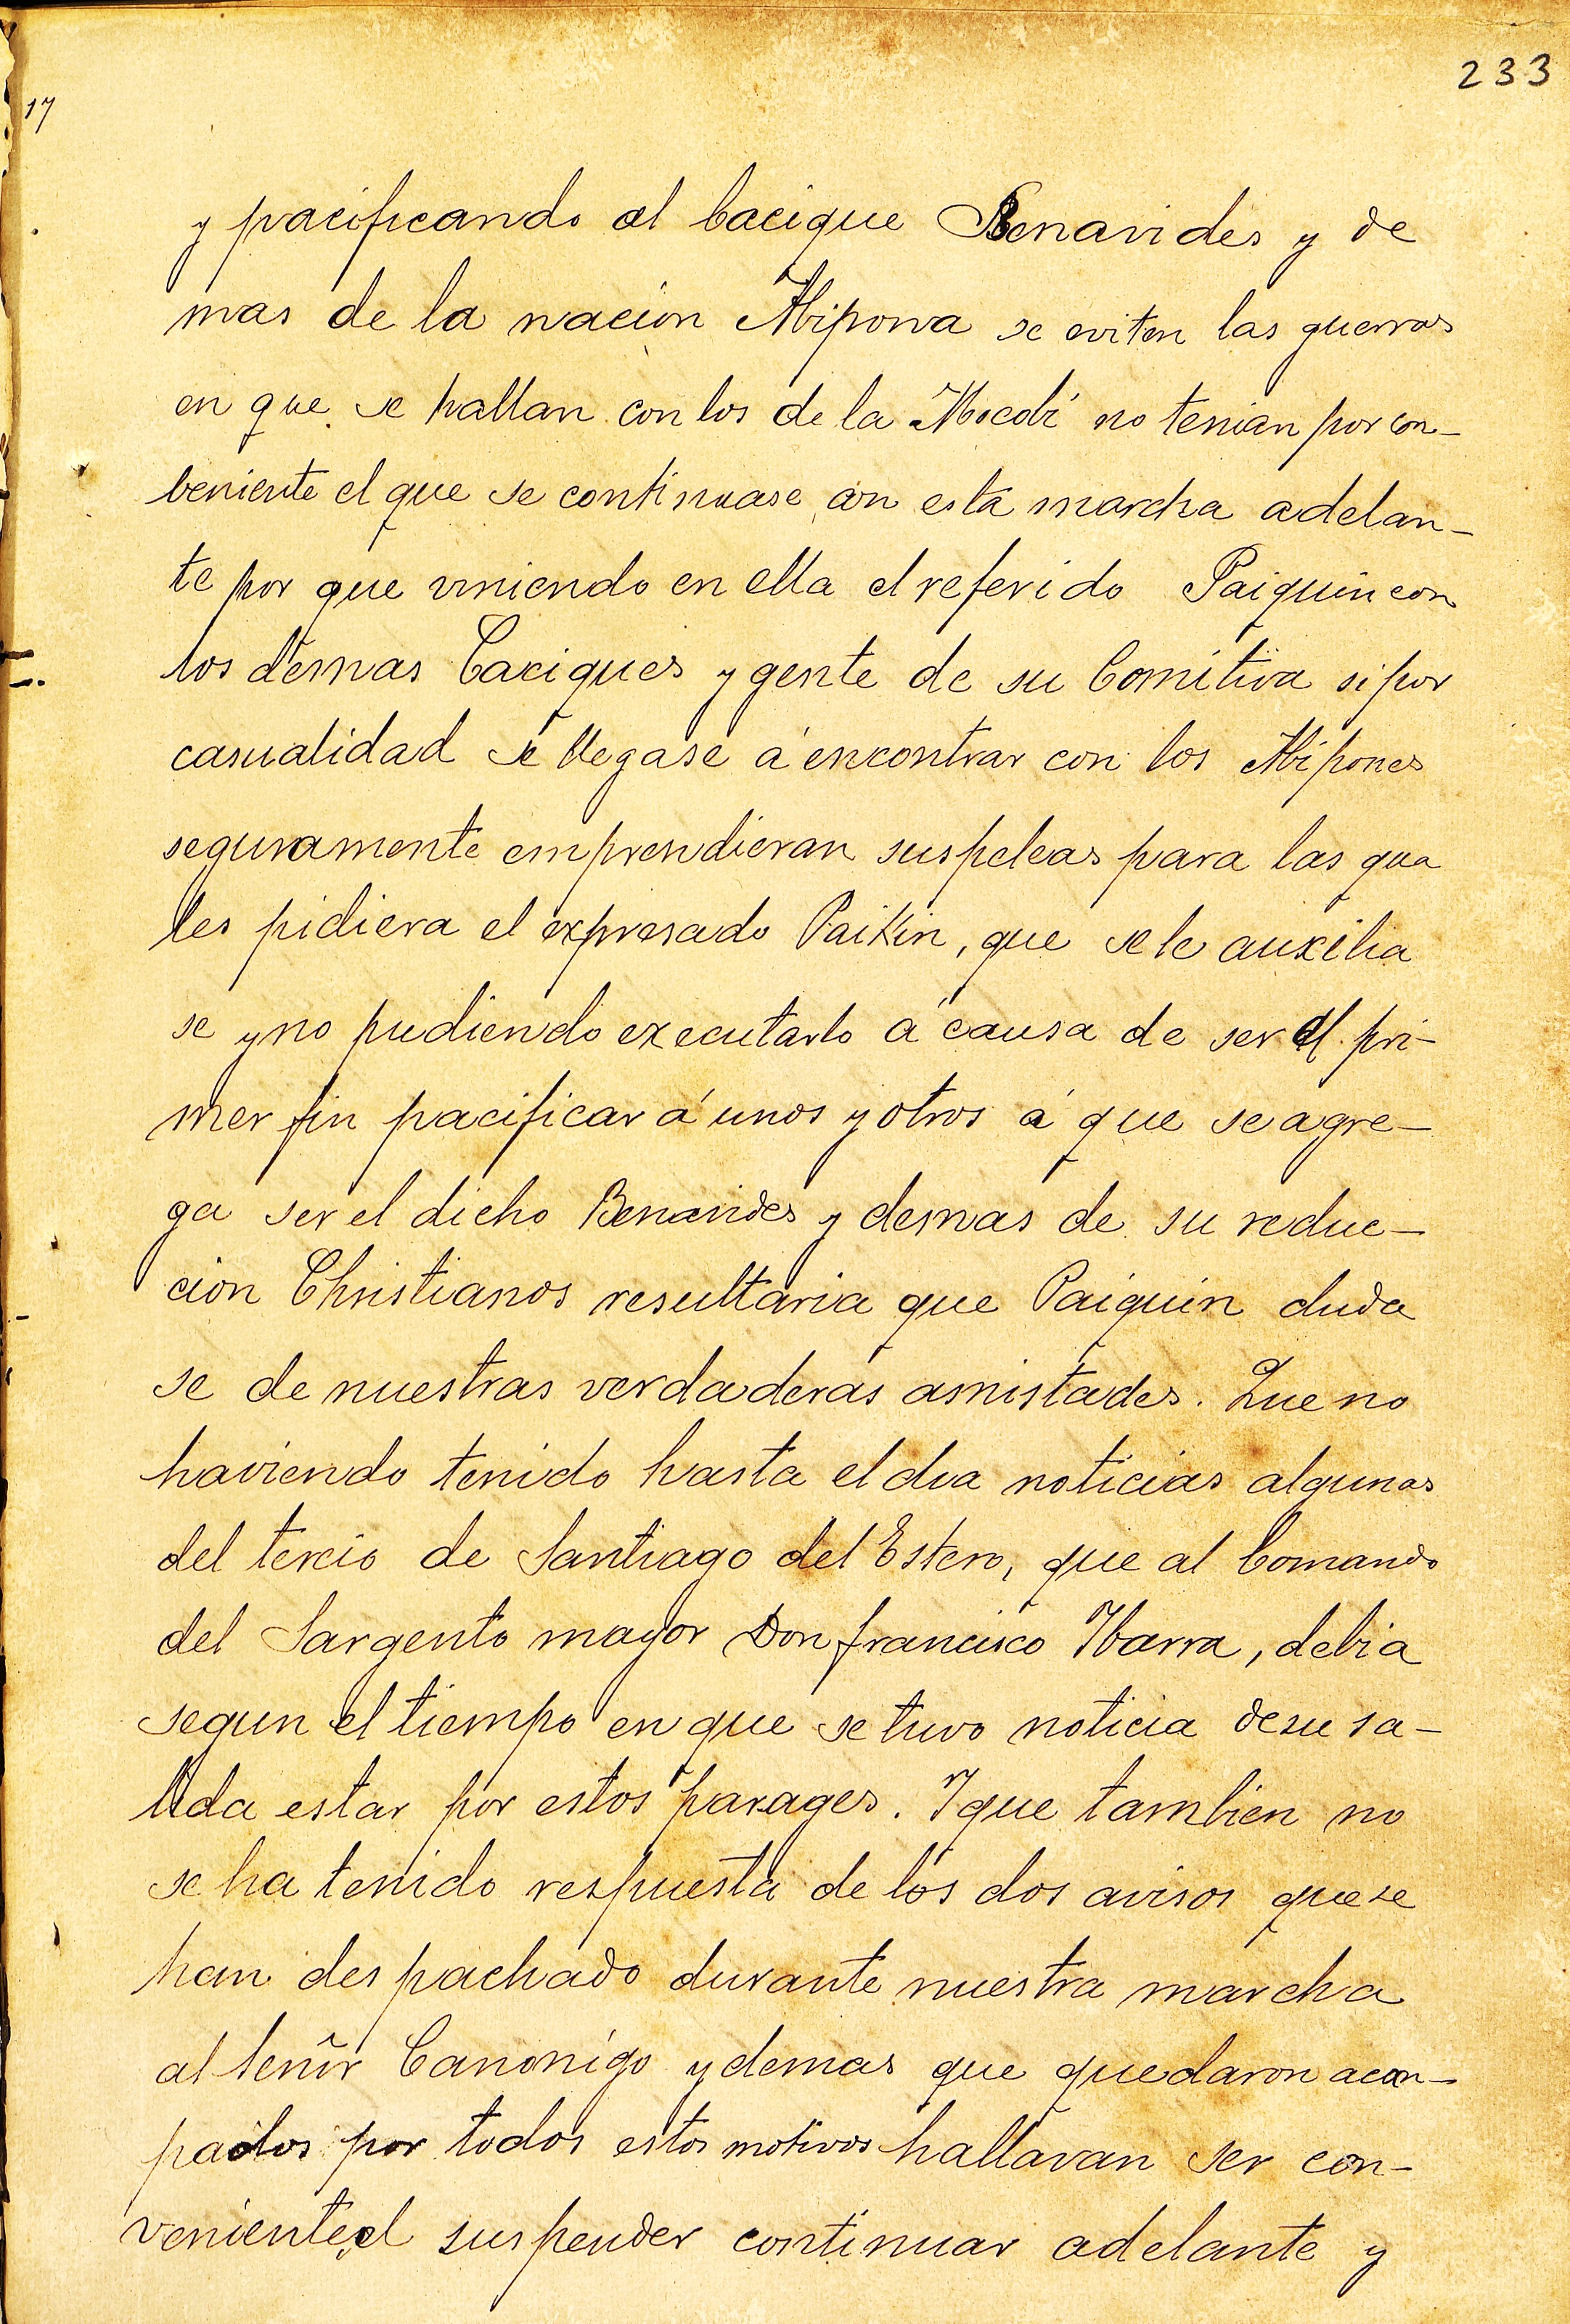 233
17
y pacificando al Cacique Benavides y de
mas de la nacion Abipona se eviten las guerras
en que se hallan con los de la Mocobí no tenian por con-
beniente el que se continuase con esta marcha adelan-
te por que viniendo en ella el referido Paiquin con
los demas Caciques y gente de su Comitiva si por
casualidad se llegase á encontrar con los Abipones
seguramente emprendieran sus peleas para las qua
les pidiera el expresado Paikin, que se le auxilia
se y no pudiendo executarlo á causa de ser el pri-
mer fin pacificar á unos y otros á que se agre-
ga ser el dicho Benavides y demas de su reduc-
cion Christianos resultaria que Paiquin duda
se de nuestras verdaderas amistades. Que no
haviendo tenido hasta el dia noticias algunas
del tercio de Santiago del Estero, que al Comando
del Sargento mayor Don francisco Ibarra, debia
segun el tiempo en que se tuvo noticia de su sa-
lida estar por estos parages. Y que tambien no
se ha tenido respuesta de los dos avisos que se
han despachado durante nuestra marcha
al Señr Canonigo y demas que quedaron acam-
pados por todos estos motivos hallavan ser con-
veniente el suspender continuar adelante y